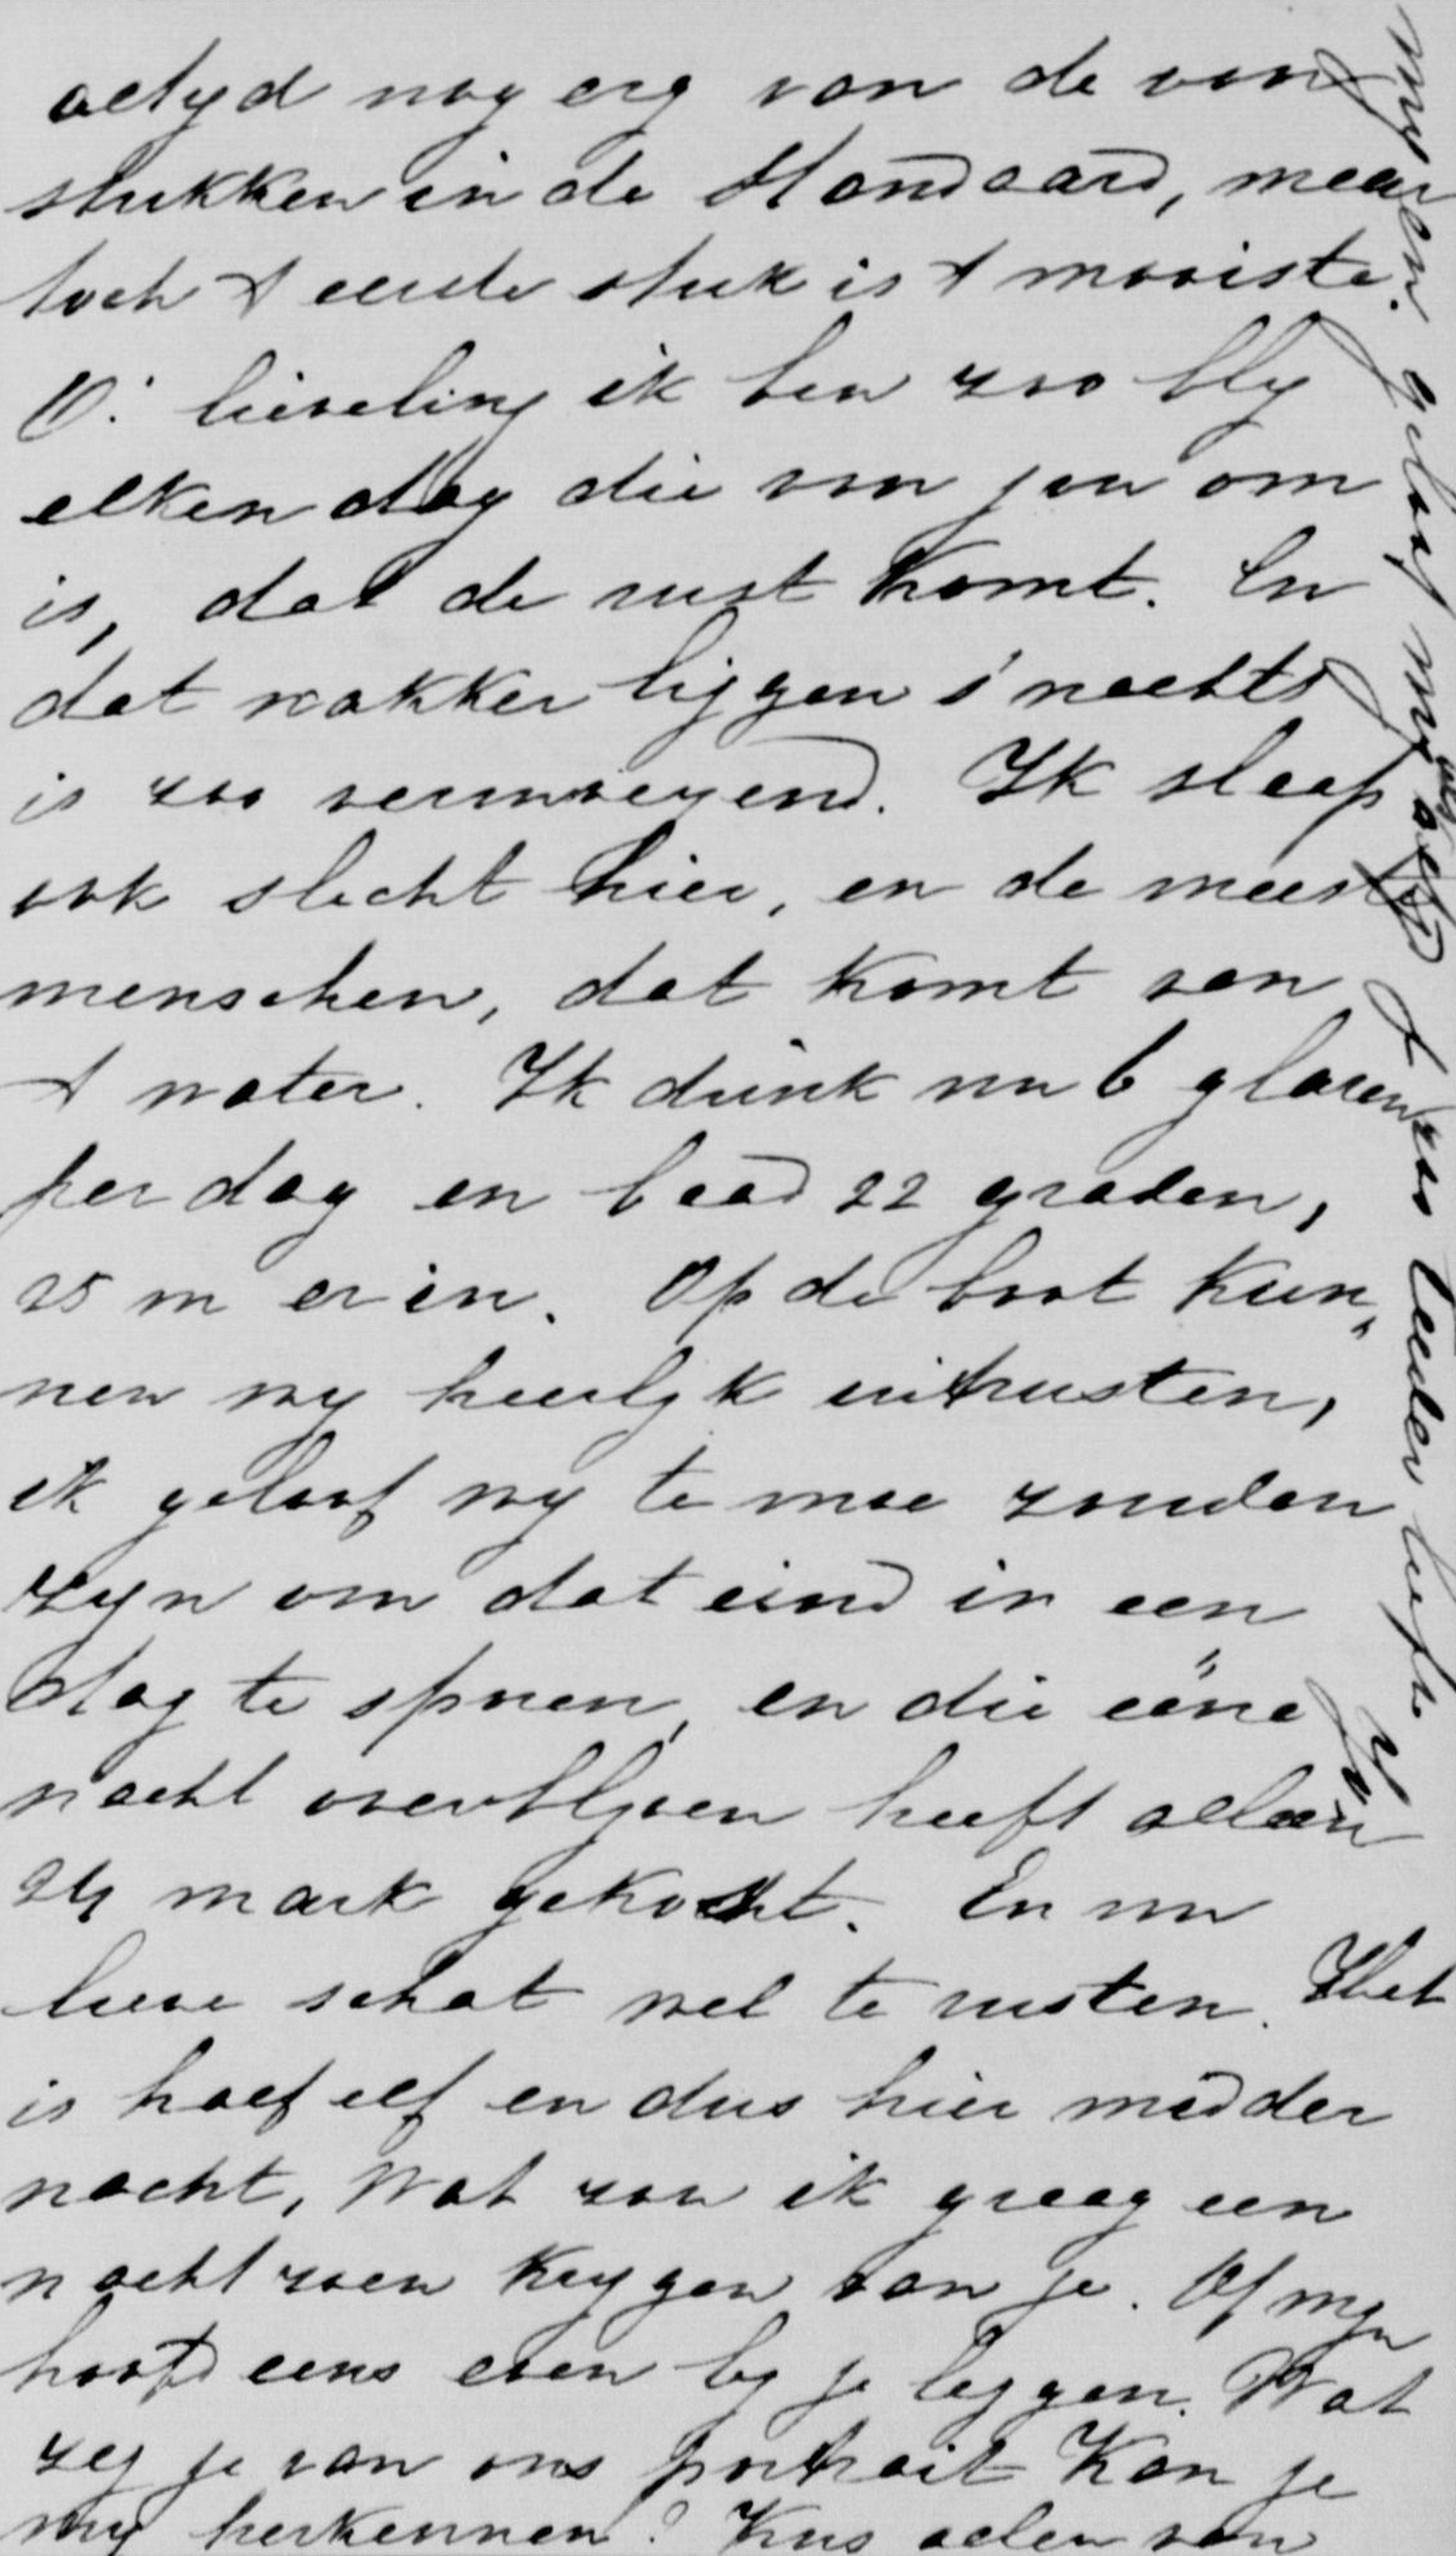 altyd nog erg van de van
stukken in de Standaard, maar
toch 't eerste stuk is 't mooiste.
O! lieveling ik ben zoo bly
elken dag die van jou om
is, dat de rust komt. En
dat wakker liggen 's nachts
is zoo vermoeyend. Ik slaap
ook slecht hier, en de meeste
menschen, dat komt van
't water. Ik drink nu 6 glazen
per dag en baad 22 graden,
25 m er in. Op de boot kun„
nen wy heerlyk uitrusten,
ik geloof wy te moe zouden
zyn om dat eind in een
dag te sporen, en die eéne
nacht overblyven heeft alleen
24 mark gekost. En nu
lieve schat wel te rusten. Het
is half elf en dus hier midder
nacht, Wat zou ik graag een
nachtzoen krygen van je. Of myn
hoofd eens even by je leggen. Wat
zeg je van ons portrait Kan je
my herkennen? Kus allen van
my en geloof my
zoo teeder liefh.